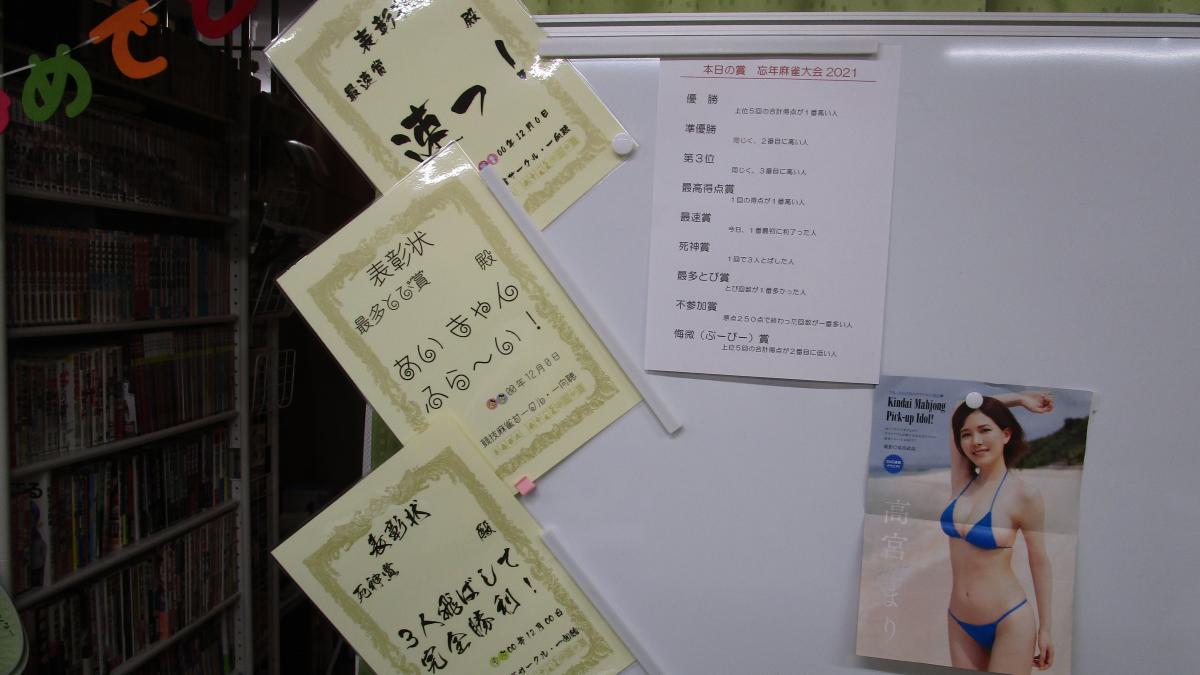 めでと
表彰
殿
最速賞
速っ!
00年12月0日
サークル・一向聴
表彰状
殿
最多とび賞
あいきゃん
ふら〜い!
00年12月0日
競技麻雀サークル・一向聴
表彰状
殿
死神賞
3人飛ばして
完全勝利!
00年12月00日
サークル・一向聴
本日の賞 忘年麻雀大会2021
優 勝
上位5回の合計得点が1番高い人
準優勝
同じく、2番目に高い人
第3位
同じく、3番目に高い人
最高得点賞
1回の得点が1番高い人
最速賞
今日、1番最初に和了った人
死神賞
1回で3人とばした人
最多とび賞
とび回数が1番多かった人
不参加賞
原点250点で終わった回数が一番多い人
悔微(ぶーびー)賞
上位5回の合計得点が2番目に低い人
Kindai Mahjong
Pick-up Idol!
高宮まり